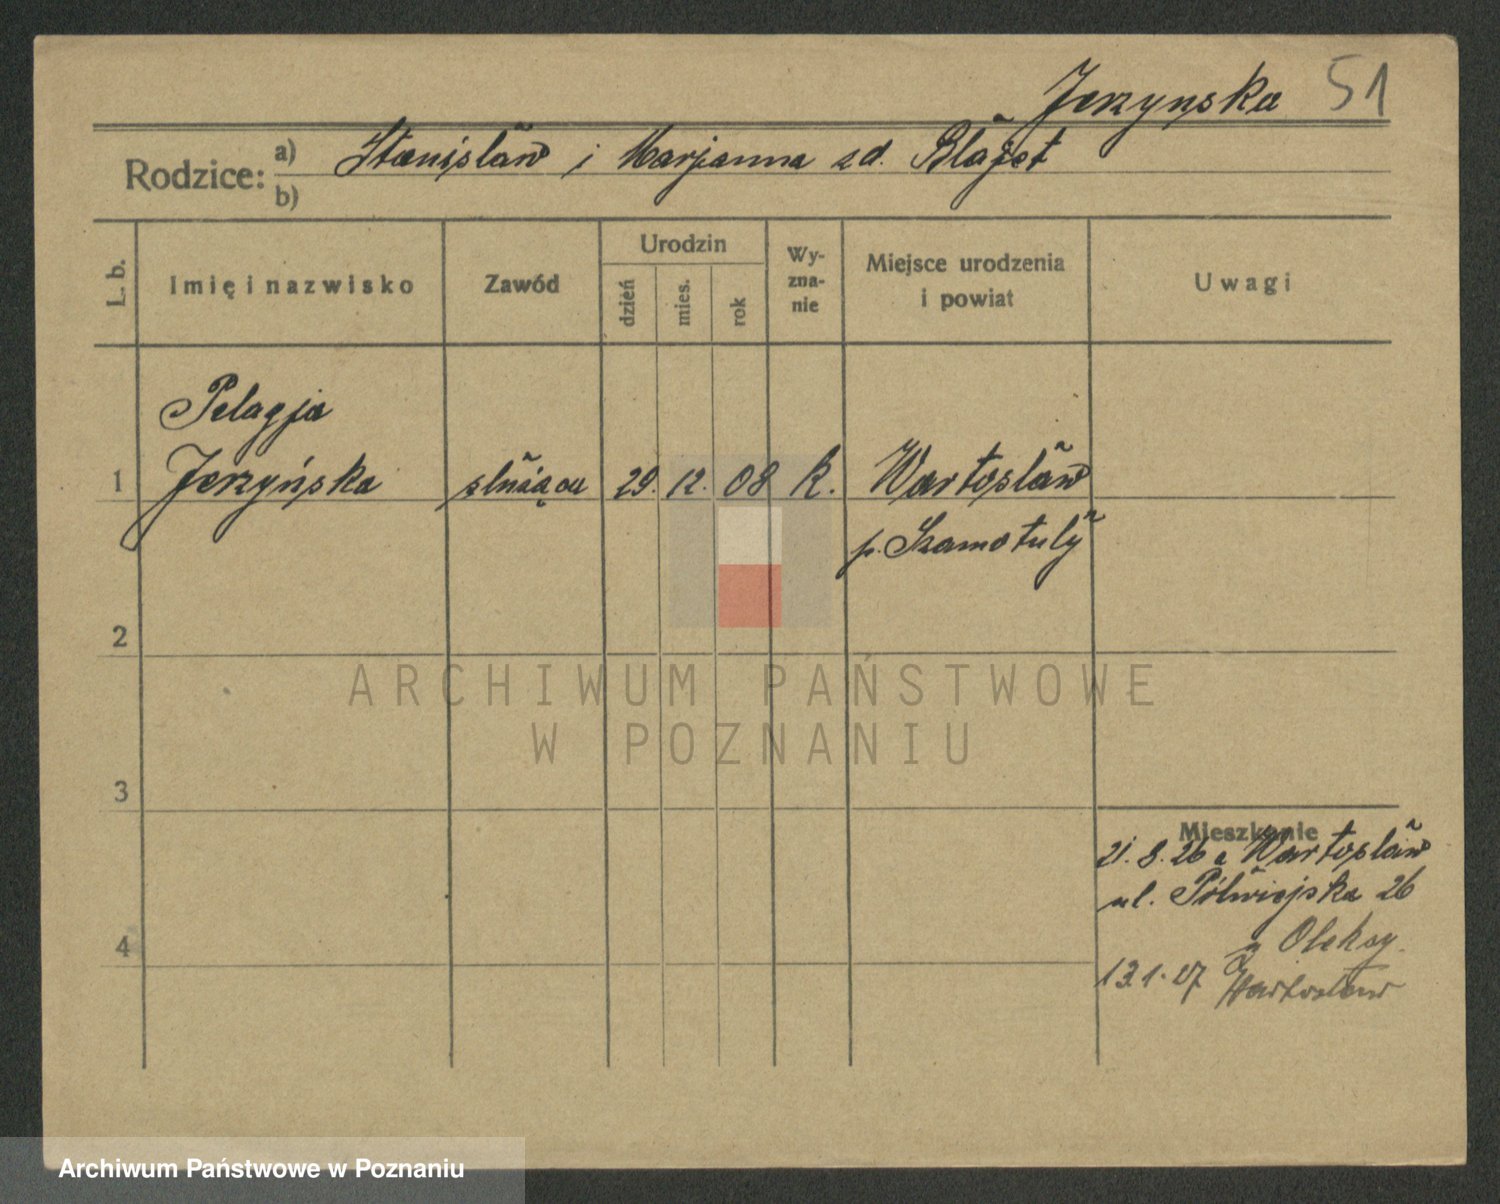 Jerzynska 51
Rodzice: a) Stanisław i Marjanna zd. Błażet
b)
L. b. Imię i nazwisko Zawód Urodzin dzień mies. rok Wy-zna-nie Miejsce urodzenia i powiat Uwagi
Pelagja
1 Jerzyńska służąca 29. 12. 08 k. Wartosław
p. Szamotuły
2
ARCHIWUM PAŃSTWOWE
W POZNANIU
3
Mieszkanie
21. 8. 26 z Wartosław
ul. Półwiejska 26
4 Oleksy
13.1.27 Wartosław
Archiwum Państwowe w Poznaniu